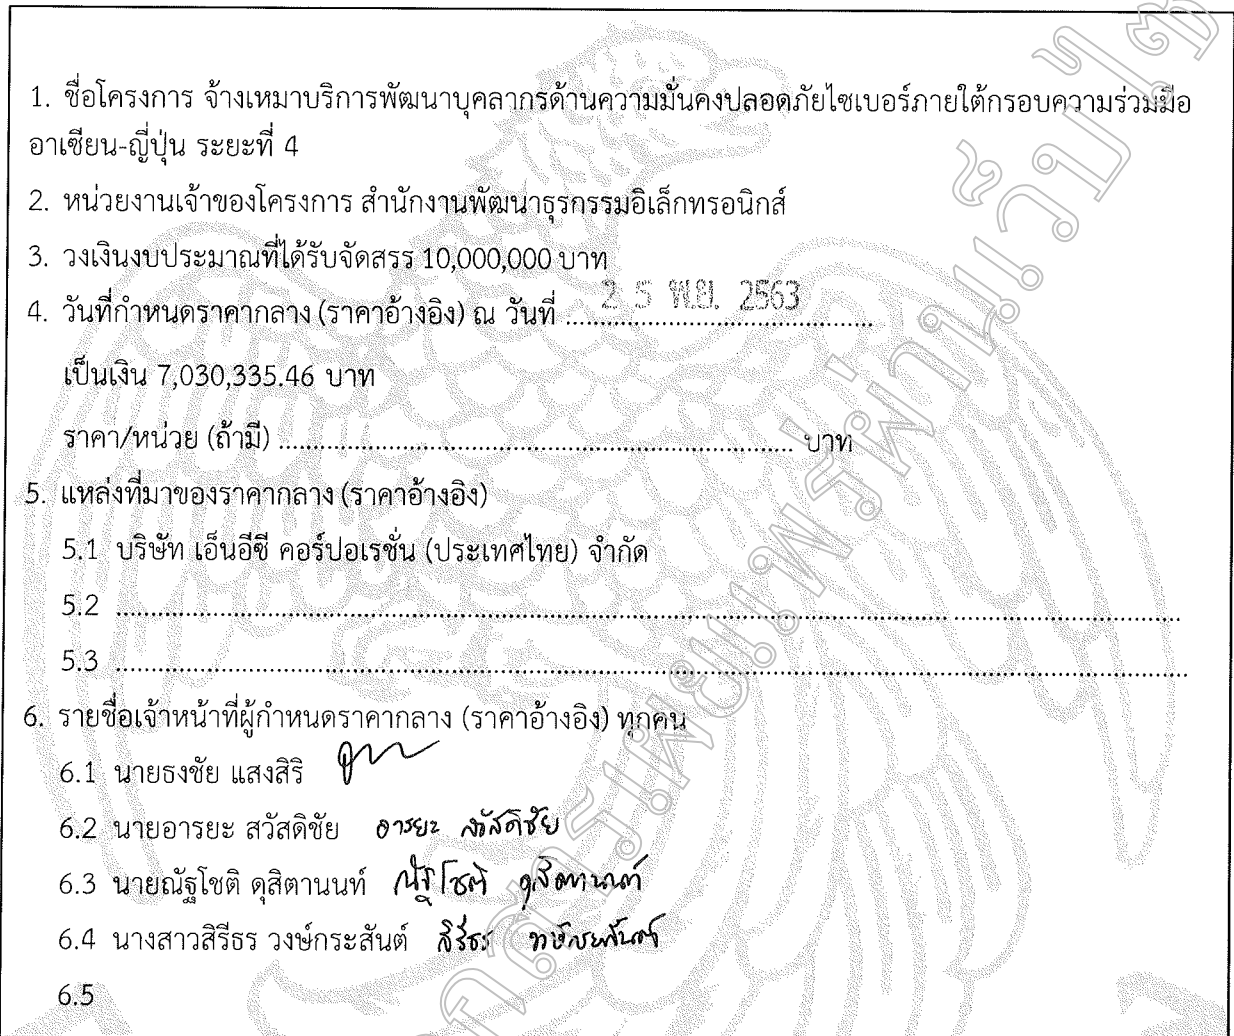 1. ชื่อโครงการ จ้างเหมาบริการพัฒนาบุคลากรด้านความมั่นคงปลอดภัยไซเบอร์ภายใต้กรอบความร่วมมือ
อาเซียน-ญี่ปุ่น ระยะที่ 4
2. หน่วยงานเจ้าของโครงการ สำนักงานพัฒนาธุรกรรมอิเล็กทรอนิกส์
3. วงเงินงบประมาณที่ได้รับจัดสรร 10,000,000 บาท
4. วันที่กำหนดราคากลาง (ราคาอ้างอิง) ณ วันที่ 25 พ.ย. 2563
เป็นเงิน 7,030,335.46 บาท
ราคา/หน่วย (ถ้ามี) ........................ บาท
5. แหล่งที่มาของราคากลาง (ราคาอ้างอิง)
5.1 บริษัท เอ็นอีซี คอร์ปอเรชั่น (ประเทศไทย) จำกัด
5.2 ........................
5.3 ........................
6. รายชื่อเจ้าหน้าที่ผู้กำหนดราคากลาง (ราคาอ้างอิง) ทุกคน
6.1 นายธงชัย แสงสิริ
6.2 นายอารยะ สวัสดิชัย อารยะ สวัสดิชัย
6.3 นายณัฐโชติ ดุสิตานนท์ ณัฐโชติ ดุสิตานนท์
6.4 นางสาวสิรีธร วงษ์กระสันต์ สิรีธร วงษ์กระสันต์
6.5